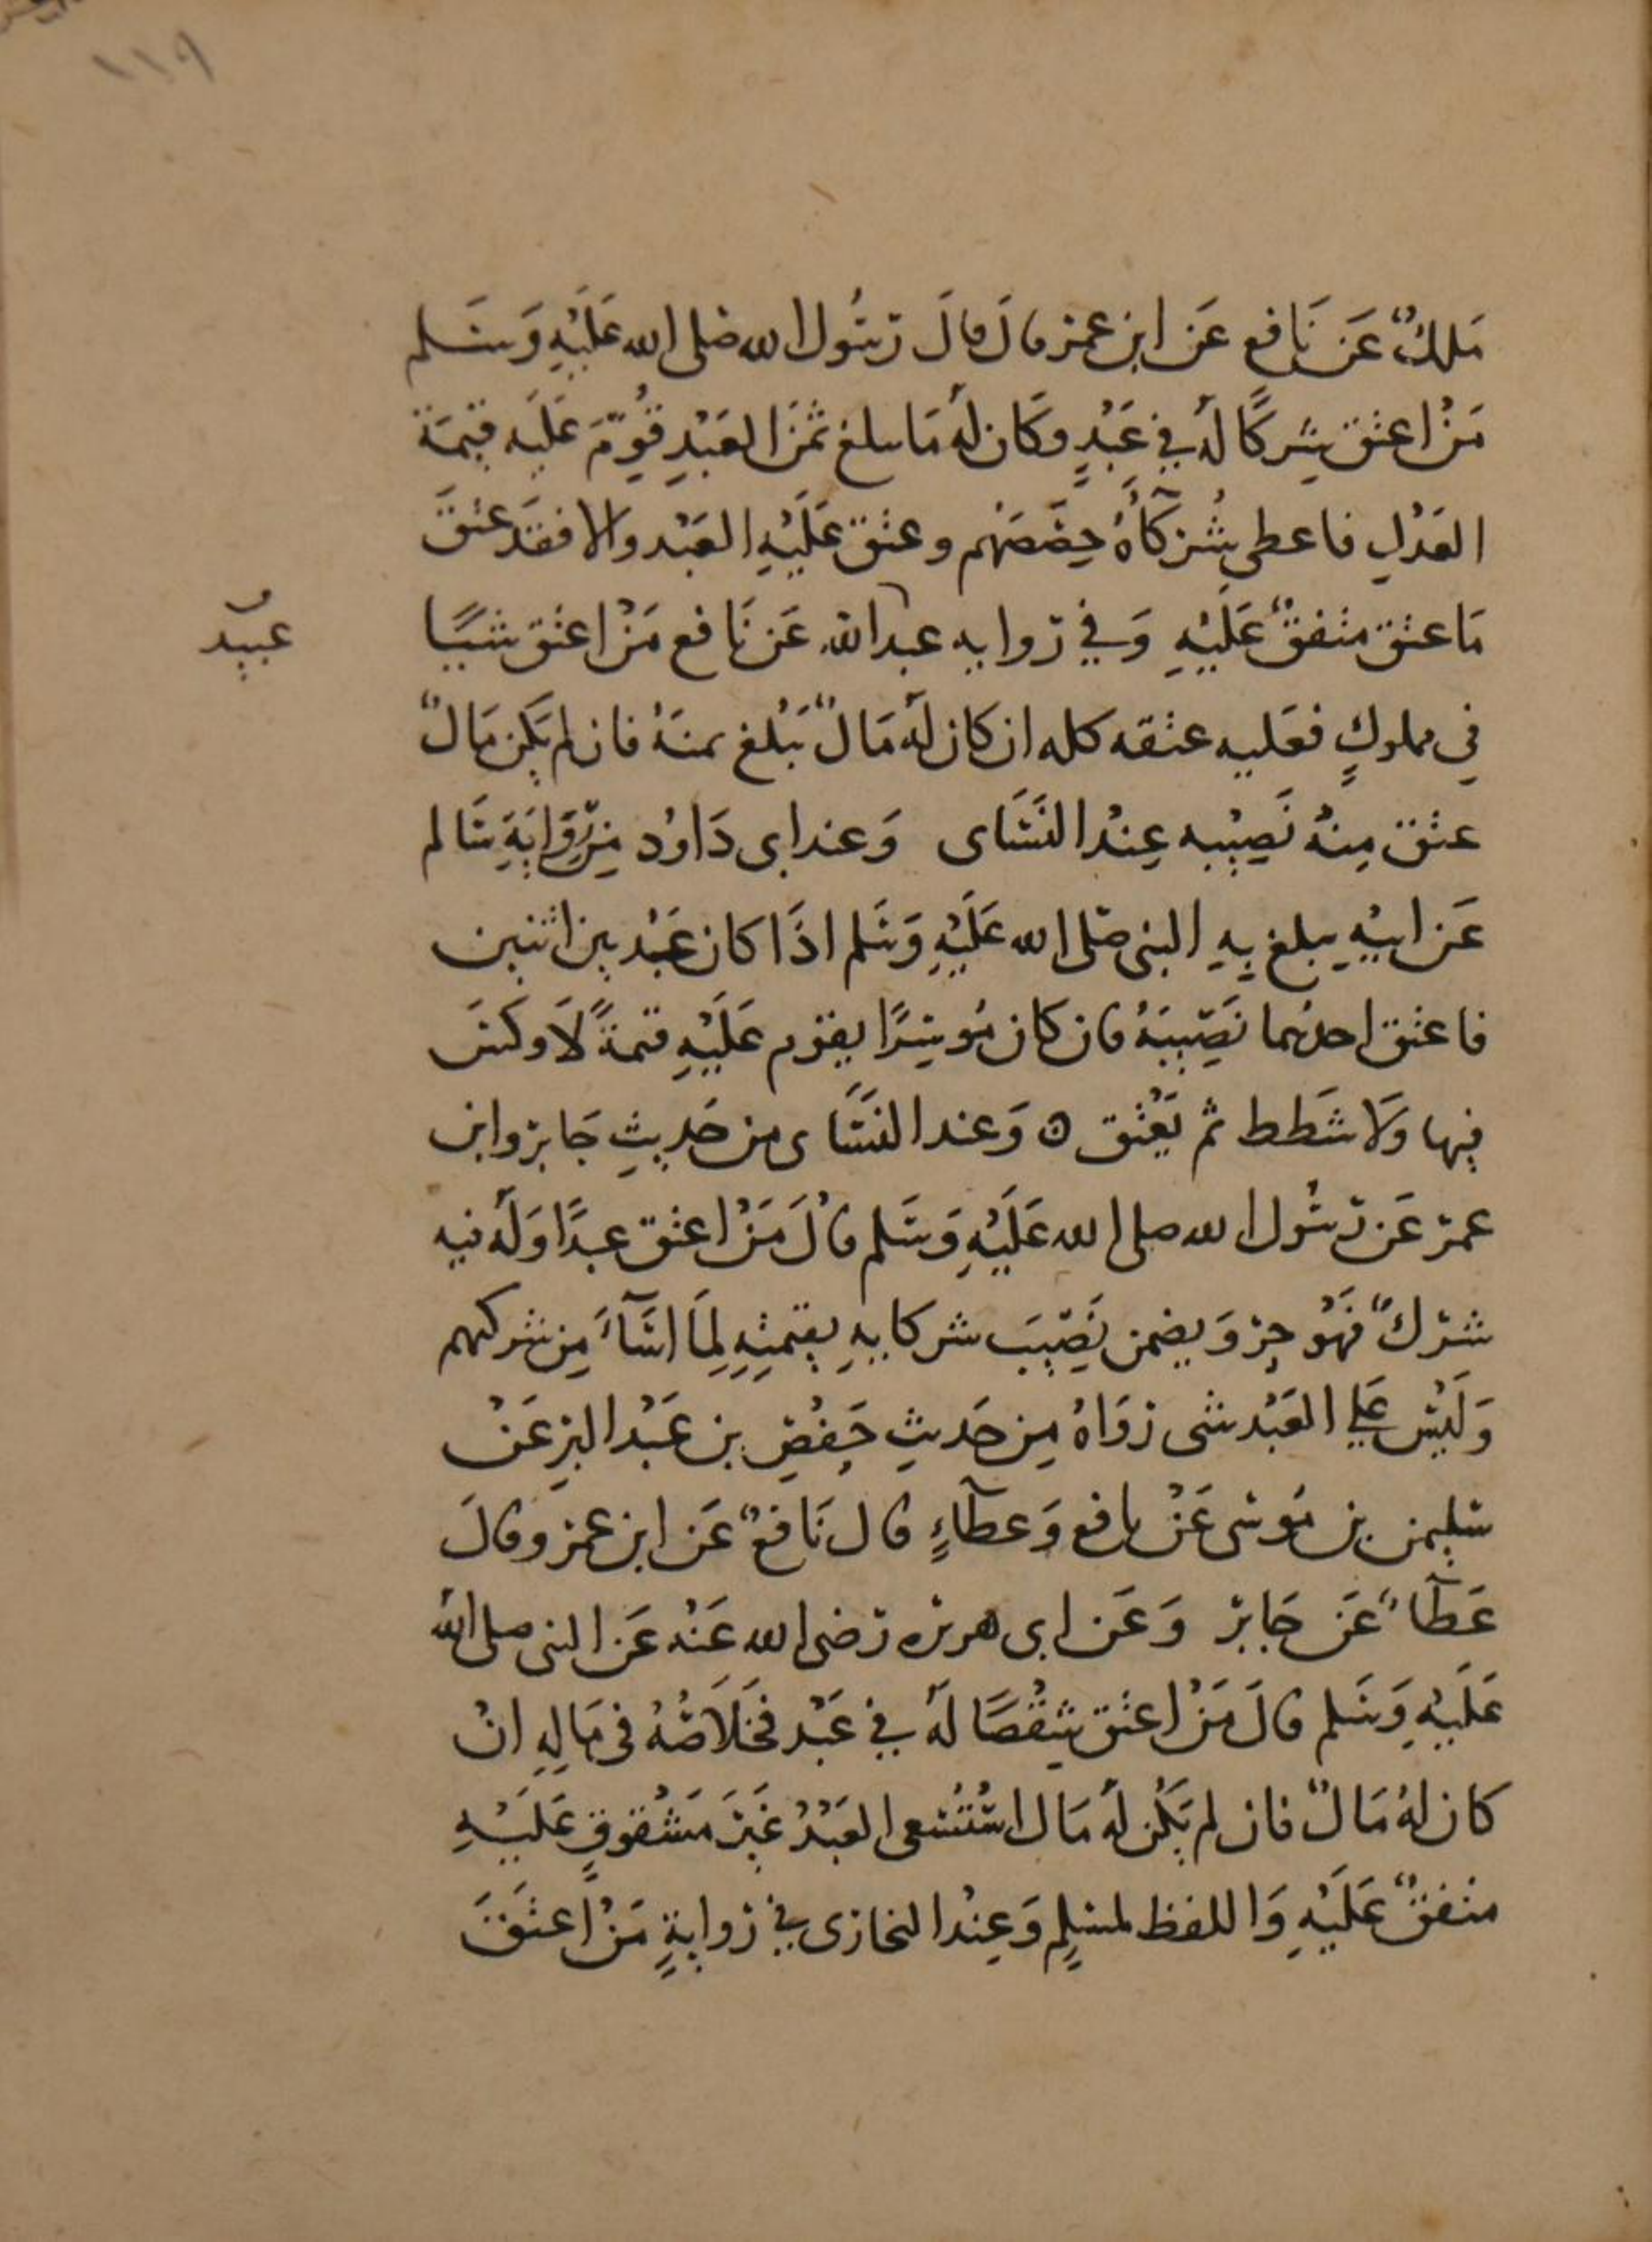 ١١٩
مَلكٌ عَن نَافع عَن ابن عمر قال قالَ رسُول الله صلى الله عَلَيْهِ وَسَلم
مَنْ اعتق شِركًا لهُ في عَبْدٍ وكَان لهُ مَا يبلغ ثمَنَ العَبْدِ قُوِّمَ عَلَيه قيمَة
العَدْلِ فاعطى شُركآهُ حِصَصَهم وعتق عَلَيْهِ العَبْد والا فقَد عتقَ
مَا عتق متفقٌ عَلَيْهِ وَفي روايه عبد الله عَن نَافع مَنْ اعتق شيًا
عبيد
في مملوكٍ فعَليه عتقه كله ان كان لهُ مَالٌ يَبْلغ ثمنَهُ فان لم يَكن مَالٌ
عتق مِنهُ نَصِيْبه عِنْد النَسَاى وَعند ابى دَاوُد مِن رِوَايَةِ سَالم
عَن ابيْهِ يبلغ بِهِ النبى صَلى الله عَلَيْهِ وَسَلم اذَا كان عَبْد بين اثنين
فاعتق احدهُما نَصِيبَهُ فان كان مُوسِرًا يقوم عَلَيْهِ قيمةً لَا وكسَ
فيها وَلَا شَطَط ثم يَعْتق ٥ وَعند النسَاى من حَديثِ جَابر وابن
عمر عَن رسُول الله صلى الله عَلَيْهِ وَسَلم قالَ مَنْ اعتق عبدًا وَلَهُ فيه
شركٌ فهُوَ حر وَيضمن نَصِيْبَ شركايهِ بقيمتِهِ لِمَا اسَآءَ مِن شركتهم
وَلَيْسَ عَلي العَبْد شى رَوَاهُ مِن حَديثِ حَفْصِ بن عَبْد البر عَنْ
سليمن بن مُوسى عَنْ نافع وَعطآءٍ قال نَافعٌ عَن ابن عمر وقالَ
عَطآءٌ عَن جَابر وَعَن ابى هريره رَضى الله عَنْه عَن النبى صلى الله
عَلَيْهِ وَسَلم قالَ مَنْ اعتق شِقْصًا لهُ في عَبْد فخَلَاصُهُ فى مَالِهِ انْ
كان لهُ مَالٌ فان لم يَكُن لهُ مَال اسْتُسْعى العَبْدُ غَيْرَ مَشْقوقٍ عَلَيْهِ
متفقٌ عَلَيْهِ وَاللفظ لمسلِمٍ وَعِنْد البخارى في روايةٍ مَنْ اعتَقَ